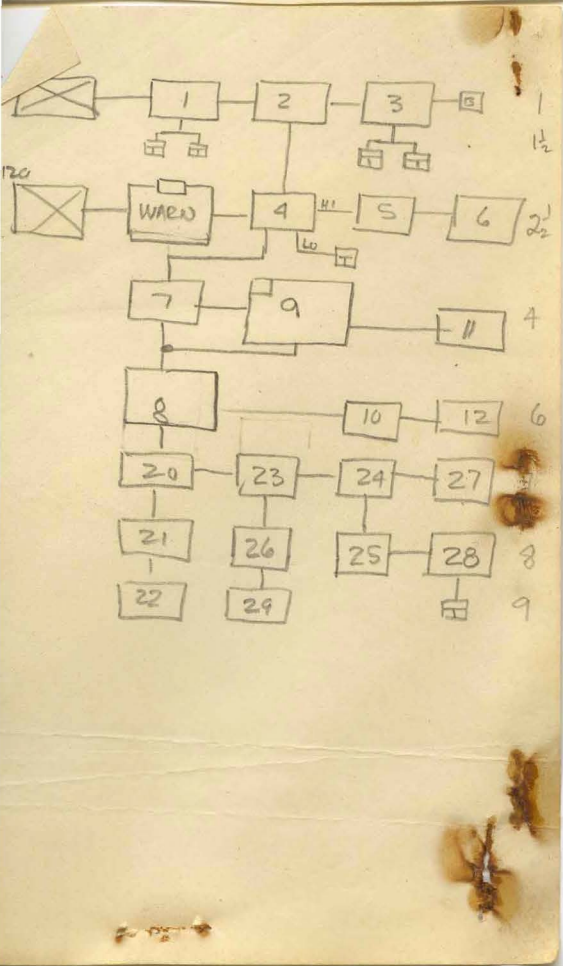 1 2 3 B 1
1½
120
WARN 4 HI 5 6 2½
LO
7 9 11 4
8 10 12 6
20 23 24 27
21 26 25 28 8
22 29 9